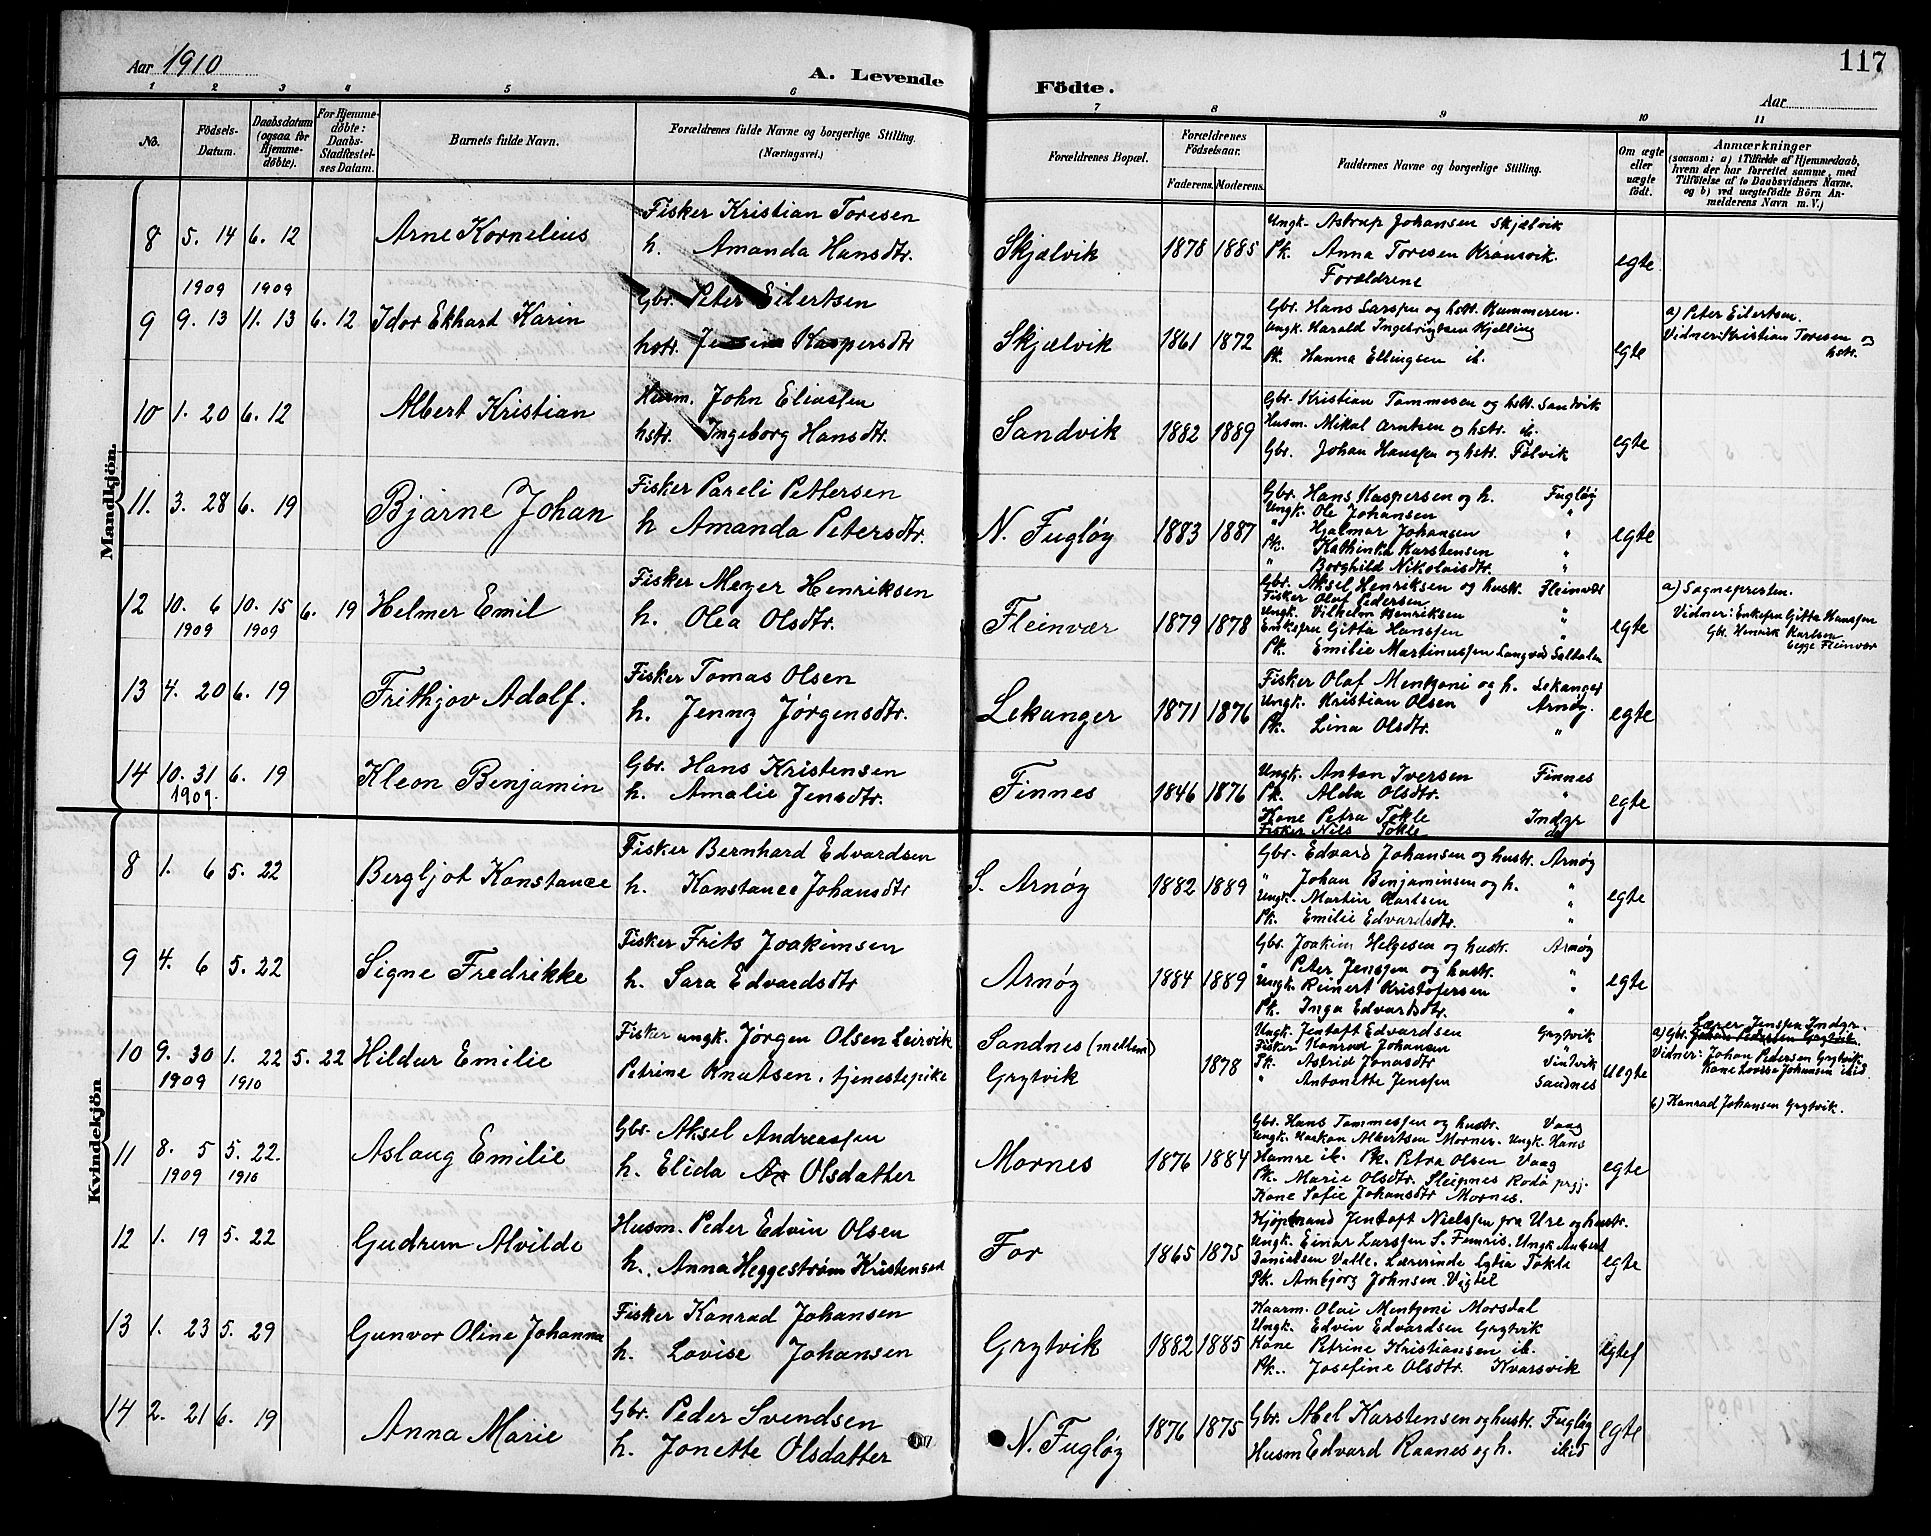 Aar 1910
A. Levende
Födte.
117
Aar
1 2 3 4 5 6 7 8 9 10 11
No.
Födsels-Datum.
Daabsdatum (ogsaa for Hjemmedöbte).
For Hjemmedöbte: Daabs-Stadfæstelses Datum.
Barnets fulde Navn.
Forældrenes fulde Navne og borgerlige Stilling.
(Næringsvei.)
Forældrenes Bopæl.
Forældrenes Födselsaar.
Faderens. Moderens.
Faddernes Navne og borgerlige Stilling.
Om ægte eller uægte födt.
Anmærkninger
(saasom: a) i Tilfælde af Hjemmedaab,
hvem der har forrettet samme, med
Tilföielse af to Daabsvidners Navne.
og b) ved uægtefödte Börn Anmelderens Navn m. V.)
Mandkjön.
8 5. 14 6. 12 Arne Kornelius
Fisker Kristian Toresen
h. Amanda Hansdtr.
Skjælvik 1878 1885
Ungk. Astrup Johansen Skjælvik
Pk. Anna Toresen Kransvik.
Forældrene
egte
1909 1909
9 9. 13 11. 13 6. 12 Idor Ekhart Karin
Gbr. Peter Eilertsen
hstr. Kaspersdtr
Skjælvik 1861 1872
Gbr. Hans Larssen og hstr. Kummeren.
Ungk. Harald Ingebrigtsen Kjelling
Pk. Hanna Ellingsen ib.
egte
a) Peter Eilertsen.
Vidner: Kristian Toresen og
hstr.
10 1. 20 6. 12 Albert Kristian
Husm. John Eliassen
hstr. Ingeborg Hansdtr.
Sandvik 1882 1889
Gbr. Kristian Tommesen og hstr. Sandvik
Husm. Mikal Arntsen og hstr. ib.
Gbr. Johan Hanssen og hstr. Følvik
egte
11. 3. 28 6. 19 Bjarne Johan
Fisker Pareli Pettersen
h Amanda Petersdtr.
N. Fugløy 1883 1887
Gbr. Hans Kaspersen og h. Fugløy
Ungk. Ole Johansen "
" Hjalmar Johansen "
Pk. Kathinka Karstensen "
" Borghild Nikolaisdtr. "
egte
12 10. 6 10. 15 6. 19 Helmer Emil
1909 1909
Fisker Meyer Henriksen
h. Olea Olsdtr.
Fleinvær 1879 1878
Gbr. Aksel Henriksen og hustr. Fleinvær
Fisker Olaf Pedersen "
Ungk. Vilhelm Henriksen "
Enkefru Gitta Hanssen "
Pk. Emilie Martinussen Langvad Saltdalen
egte
a) Sognepresten.
Vidner: Enkefru Gitta Hanssen
Gbr. Henrik Karlsen
begge Fleinvær
13 4. 20 6. 19 Frithjov Adolf.
Fisker Tomas Olsen
h. Jenny Jørgensdtr.
Lekanger 1871 1876
Fisker Olaf Mentzoni og h. Lekanger
Ungk. Kristian Olsen Arnøy.
Pk. Lina Olsdtr. "
egte
14 10. 31 6. 19 Kleon Benjamin
1909.
Gbr. Hans Kristensen
h. Amalie Jensdtr.
Finnes 1846 1876
Ungk. Anton Iversen Finnes
Pk. Alda Olsdtr. "
Kone Petra Tokle Indyr
Fisker Nils Tokle do
egte
Kvindekjön
8 1. 6 5. 22 Bergljot Konstance
Fisker Bernhard Edvardsen
h. Konstance Johansdtr
S. Arnøy 1882 1889
Gbr. Edvard Johansen og hustr. Arnøy
" Johan Benjaminsen og h. "
Ungk. Martin Karlsen "
Pk. Emilie Edvardsdtr. "
egte
9 4. 6 5. 22 Signe Fredrikke
Fisker Frits Joakimsen
h. Sara Edvardsdtr
Arnøy 1884 1889
Gbr. Joakim Helgesen og hustr. Arnøy
" Peter Jenssen og hustr. "
Ungk. Reinert Kristofersen "
Pk. Inga Edvardsdtr. "
egte
10 9. 30 1. 22 5. 22 Hildur Emilie
1909 1910
Fisker ungk. Jørgen Olsen Leirvik
Petrine Knutsen, tjenestepike
Sandnes (mellem)
Grytvik
1878
Ungk. Jentoft Edvardsen Grytvik
Fisker Konrad Johansen "
Pk. Astrid Jonasdtr Vindvik
" Antonette Jenssen Sandnes
uegte
Lærer Jenssen Indyr.
a) Gbr. Johan Pedersen Grytvik.
Vidner: Johan Pedersen Grytvik
Kone Lovise Johansen ibid
b) Konrad Johansen Grytvik.
11 8. 5 5. 22. Aslaug Emilie
1909 1910
Gbr. Aksel Andreassen
h. Elida Olsdatter
Mornes 1876 1884
Gbr. Hans Tommessen og hustr. Vaag
Ungk. Haakon Albertsen Mornes. Ungk. Hans
Hamre ib. Pk. Petra Olsen Vaag
Pk. Marie Olsdtr. Sleipnes Rødø prgj.
Kone Sofie Johansdtr Mornes.
egte
12 1. 19 5. 22 Gudrun Alvilde
Husm. Peder Edvin Olsen
h. Anna Heggestrøm Kristensen
For 1865 1875
Kjøpmand Jentoft Nielssen fra Ure og hustr.
Ungk. Einar Larssen S. Funris. Ungk. Anbert
Danielsen Valle. Lærerinde Lydia Tokle
Pk. Ambjørg Johnsen Vigtel
egte
13 1. 23 5. 29 Gunvor Oline Johanna
Fisker Konrad Johansen
h. Lovise Johansen
Grytvik 1882 1885
Kaarm. Olai Mentzoni Morsdal
Ungk. Edvin Edvardsen Grytvik
Kone Petrine Kristiansen ib.
Pk. Josefine Olsdtr. Kvarsvik
egte
14 2. 21 6. 19 Anna Marie
Gbr. Peder Svendsen
h. Jonette Olsdatter
117
N. Fugløy 1876 1875
Gbr. Abel Karstensen og hustr. Fugløy
Husm Edvard Raanes og h. ibid
egte